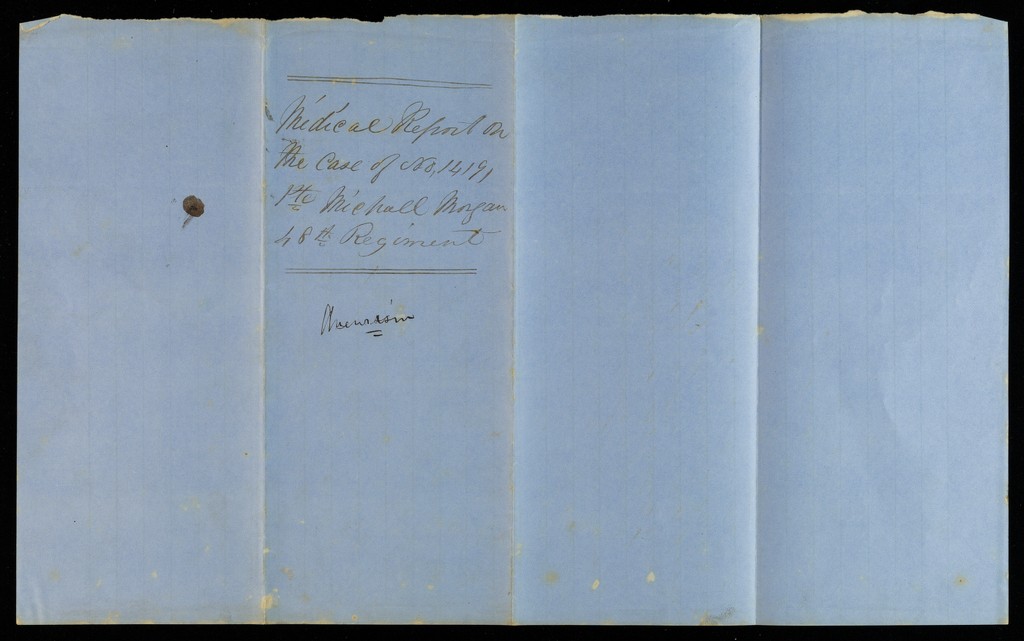 Medical Report on
the Case of No, 14191
Pte Michall Morgan
48th Regiment
Aneurism